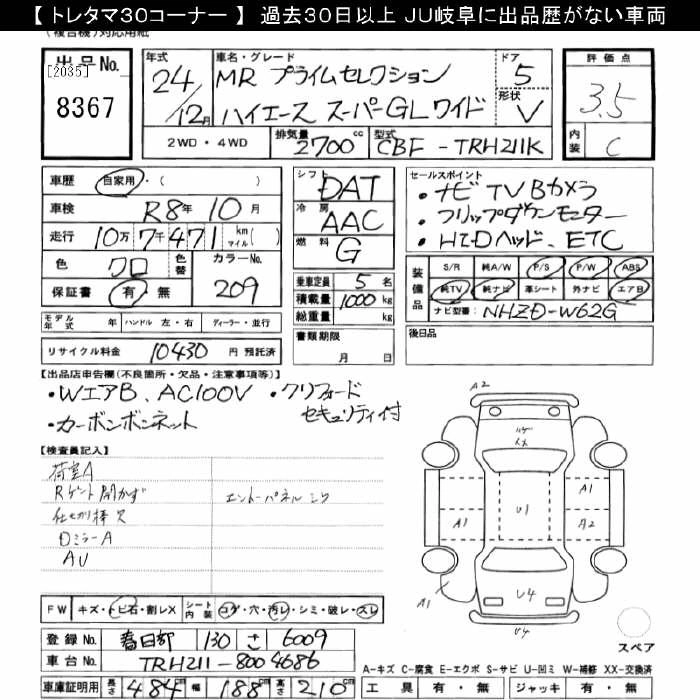 【 トレタマ30コーナー 】 過去30日以上 JU岐阜に出品歴がない車両
(複合機)対応用紙
出品No.
[2035]
8367
年式
24/12月
車名・グレード
MR プライムセレクション
ハイエース スーパーGLワイド
ドア
5
形状
V
評価点
3.5
内装
C
2WD・4WD
排気量
2700cc
型式
CBF-TRH211K
車歴 自家用・( )
車検 R8年10月
走行 10万7千471 km マイル( )
色 クロ 色替 カラーNo.
209
保証書 有 無
シフト DAT
冷房 AAC
燃料 G
乗車定員 5名
積載量 1000kg
総重量 kg
書類期限
月 日
セールスポイント
・ナビTVBカメラ
・フリップダウンモニター
・HIDヘッド、ETC
装備品
S/R 純A/W P/S P/W ABS
純TV 純ナビ 革シート 外ナビ エアB
ナビ型番: NHZD-W62G
モデル年式 年 ハンドル 左・右 ディーラー・並行
後日品
リサイクル料金 10430 円 預託済
【出品店申告欄(不良箇所・欠品・注意事項等)】
・WエアB、AC100V ・クリフォード
セキュリティ付
・カーボンボンネット
【検査員記入】
荷室A
Rゲート開かず
エントーパネルシワ
仕切り棒欠
DミラーA
AU
A2
XX
A1
A1
U1
A2
A1
U4
U4
FW キズ・トビ石・割レX シート内装 コゲ・穴・汚レ・シミ・破レ・スレ
スペア
登録No. 春日部 130 さ 6009
車台No. TRH211-8004686
A-キズ C-腐食 E-エクボ S-サビ U-凹ミ W-補修 XX-交換済
車庫証明用 長さ 484cm 幅 188cm 高さ 210cm
工具 有・無 ジャッキ 有・無